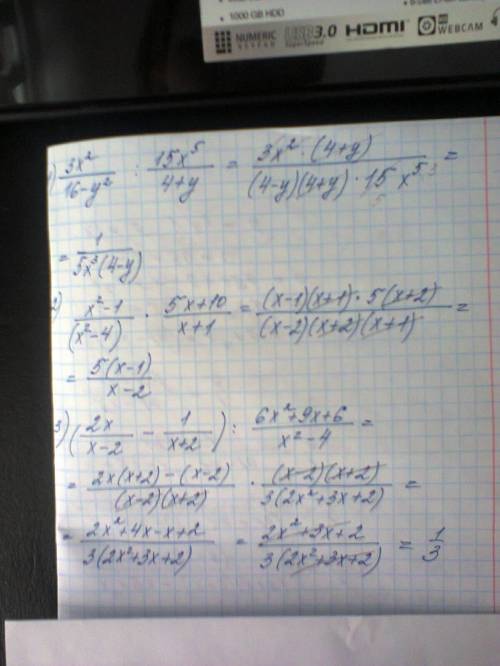 1000 GB HDD
NUMERIC USB3.0 HDMI HD WEBCAM
SuperSpeed
1) 3x²/(16-y²) : 15x⁵/(4+y) = (3x²·(4+y))/((4-y)(4+y)·15x⁵) =
= 1/(5x³(4-y))
2) (x²-1)/(x²-4) · (5x+10)/(x+1) = ((x-1)(x+1)·5(x+2))/((x-2)(x+2)(x+1)) =
= 5(x-1)/(x-2)
3) (2x/(x-2) - 1/(x+2)) : (6x²+9x+6)/(x²-4) =
= (2x(x+2)-(x-2))/((x-2)(x+2)) · ((x-2)(x+2))/(3(2x²+3x+2)) =
= (2x²+4x-x+2)/(3(2x²+3x+2)) = (2x²+3x+2)/(3(2x²+3x+2)) = 1/3